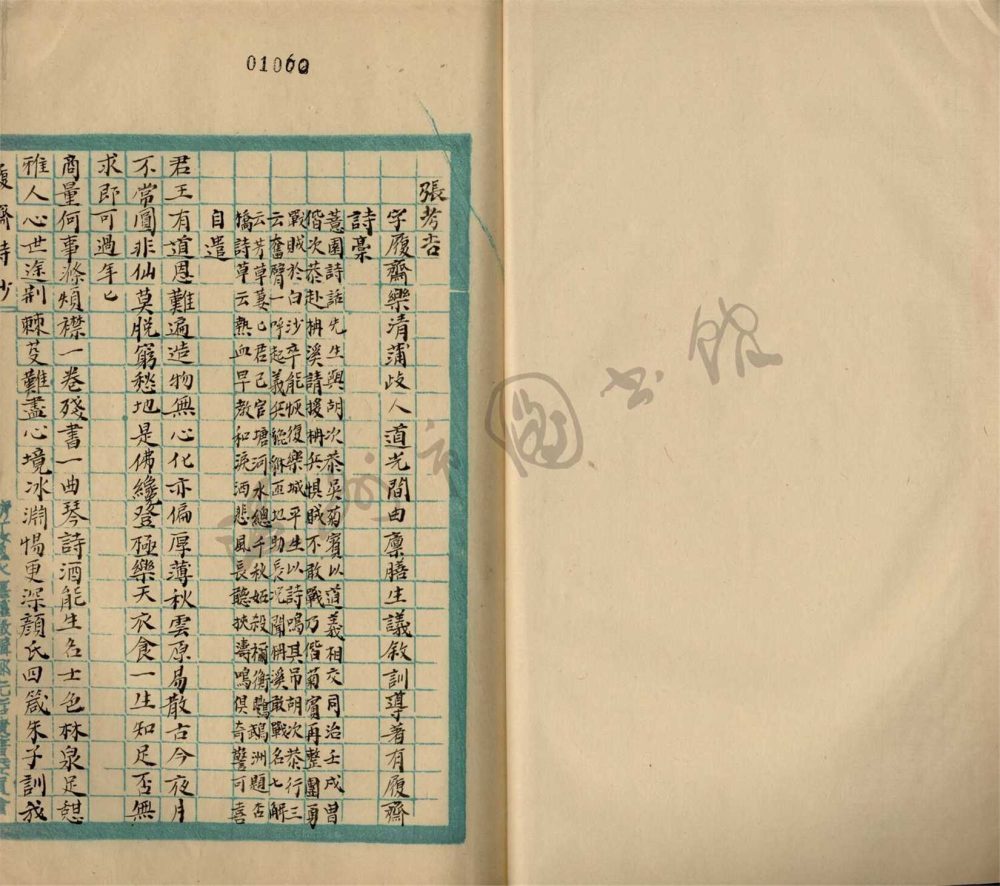 01060
張考吉
字履齋樂清蒲歧人道光間由廪膳生議敘訓導著有履齋
詩稾
薏園詩話先生與胡次恭吳菊賓以道義相交同治壬戌曾
偕次恭赴枬溪請援枬兵惧賊不敢戰乃偕菊賓再整團勇
戰賊於白沙卒能恢復樂城平生以詩鳴其吊胡次恭行三
云奮臂一呼起義兵 亘地助長 聞枬溪敢戰名七解
云芳草萋已君已官塘河水總千秋 殺禰衡鸚鵡洲題否
詩草云熱血早教和淚洒悲風長聽挾濤鳴俱奇警可喜
自遣
君王有道恩難遍造物無心化亦偏厚薄秋雲原易散古今夜月
不常圓非仙莫脫窮愁地是佛纔登極樂天衣食一生知足否無
求即可過年已
商量何事滌煩襟一卷殘書一曲琴詩酒能生名士色林泉足憇
雅人心世途荆棘芟難盡心境冰淵惕更深顏氏四箴朱子訓我
履齋詩少
圖書館